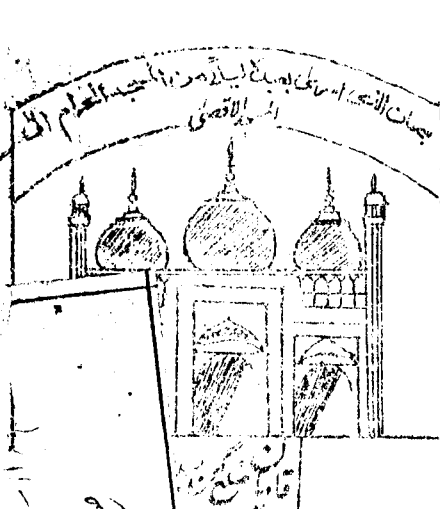 سبحان الذی اسریٰ بعبدہ لیلاً من المسجد الحرام الی
المسجد الاقصیٰ
ضلع